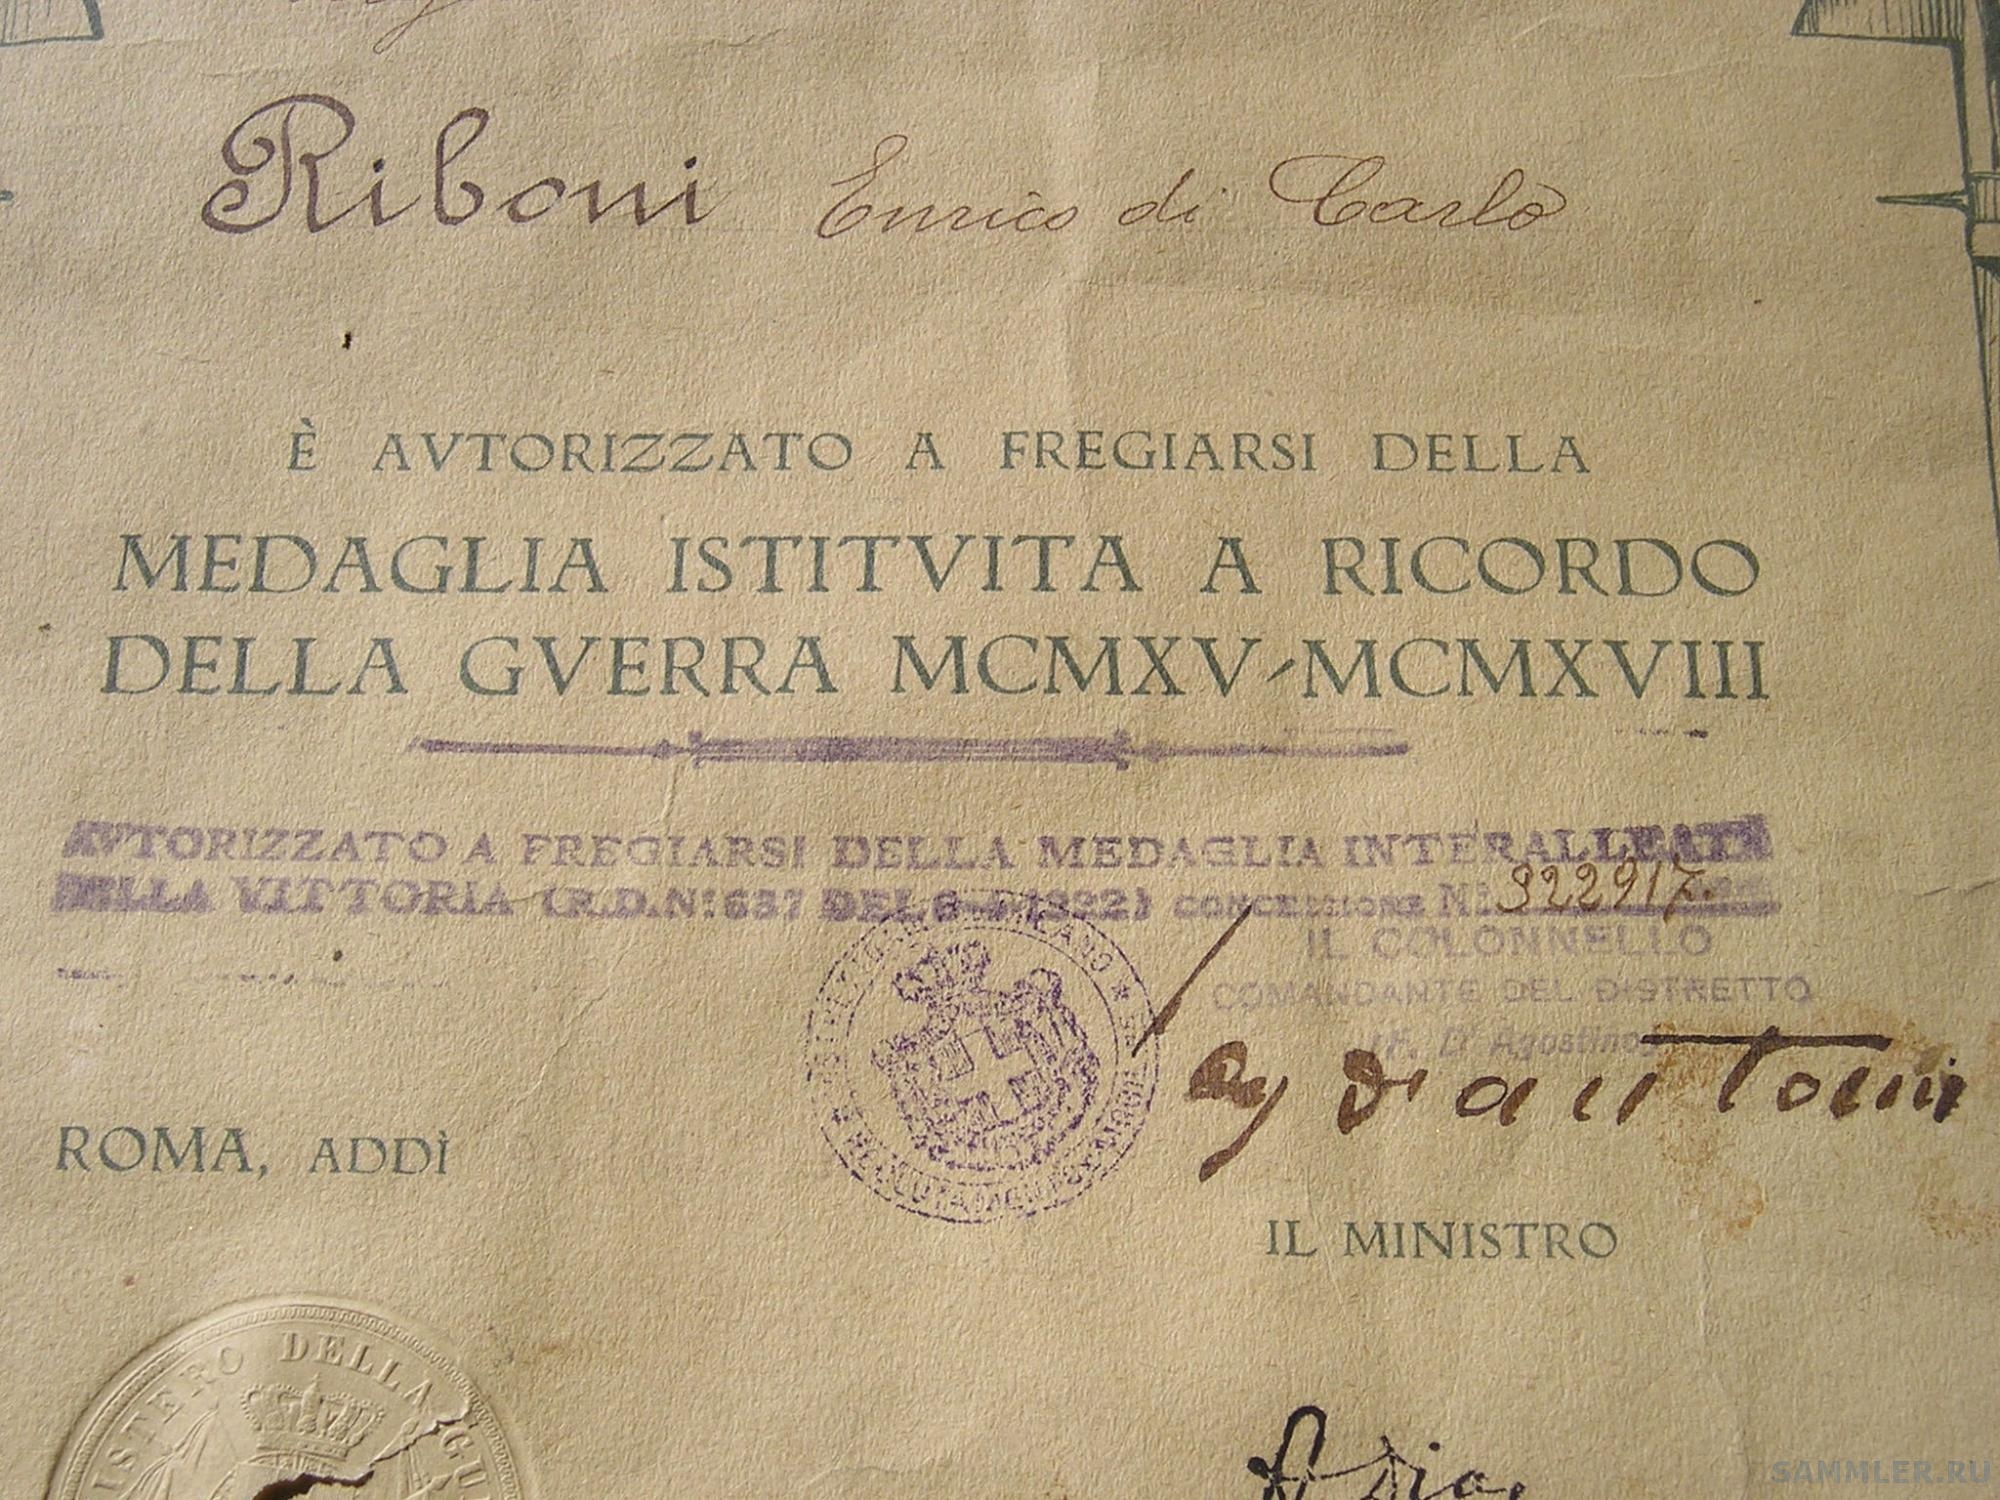 Riboni Enrico di Carlo
È AVTORIZZATO A FREGIARSI DELLA
MEDAGLIA ISTITVITA A RICORDO
DELLA GVERRA MCMXV-MCMXVIII
AVTORIZZATO A FREGIARSI DELLA MEDAGLIA INTERALLEATA
DELLA VITTORIA (R.D. N: 637 DEL 6-4-1922) CONCESSIONE N: 322917.
IL COLONNELLO
COMANDANTE DEL DISTRETTO
(F. D'Agostino)
ROMA, ADDÌ
IL MINISTRO
ISTERO DELLA GU
A. Dia
SAMMLER.RU